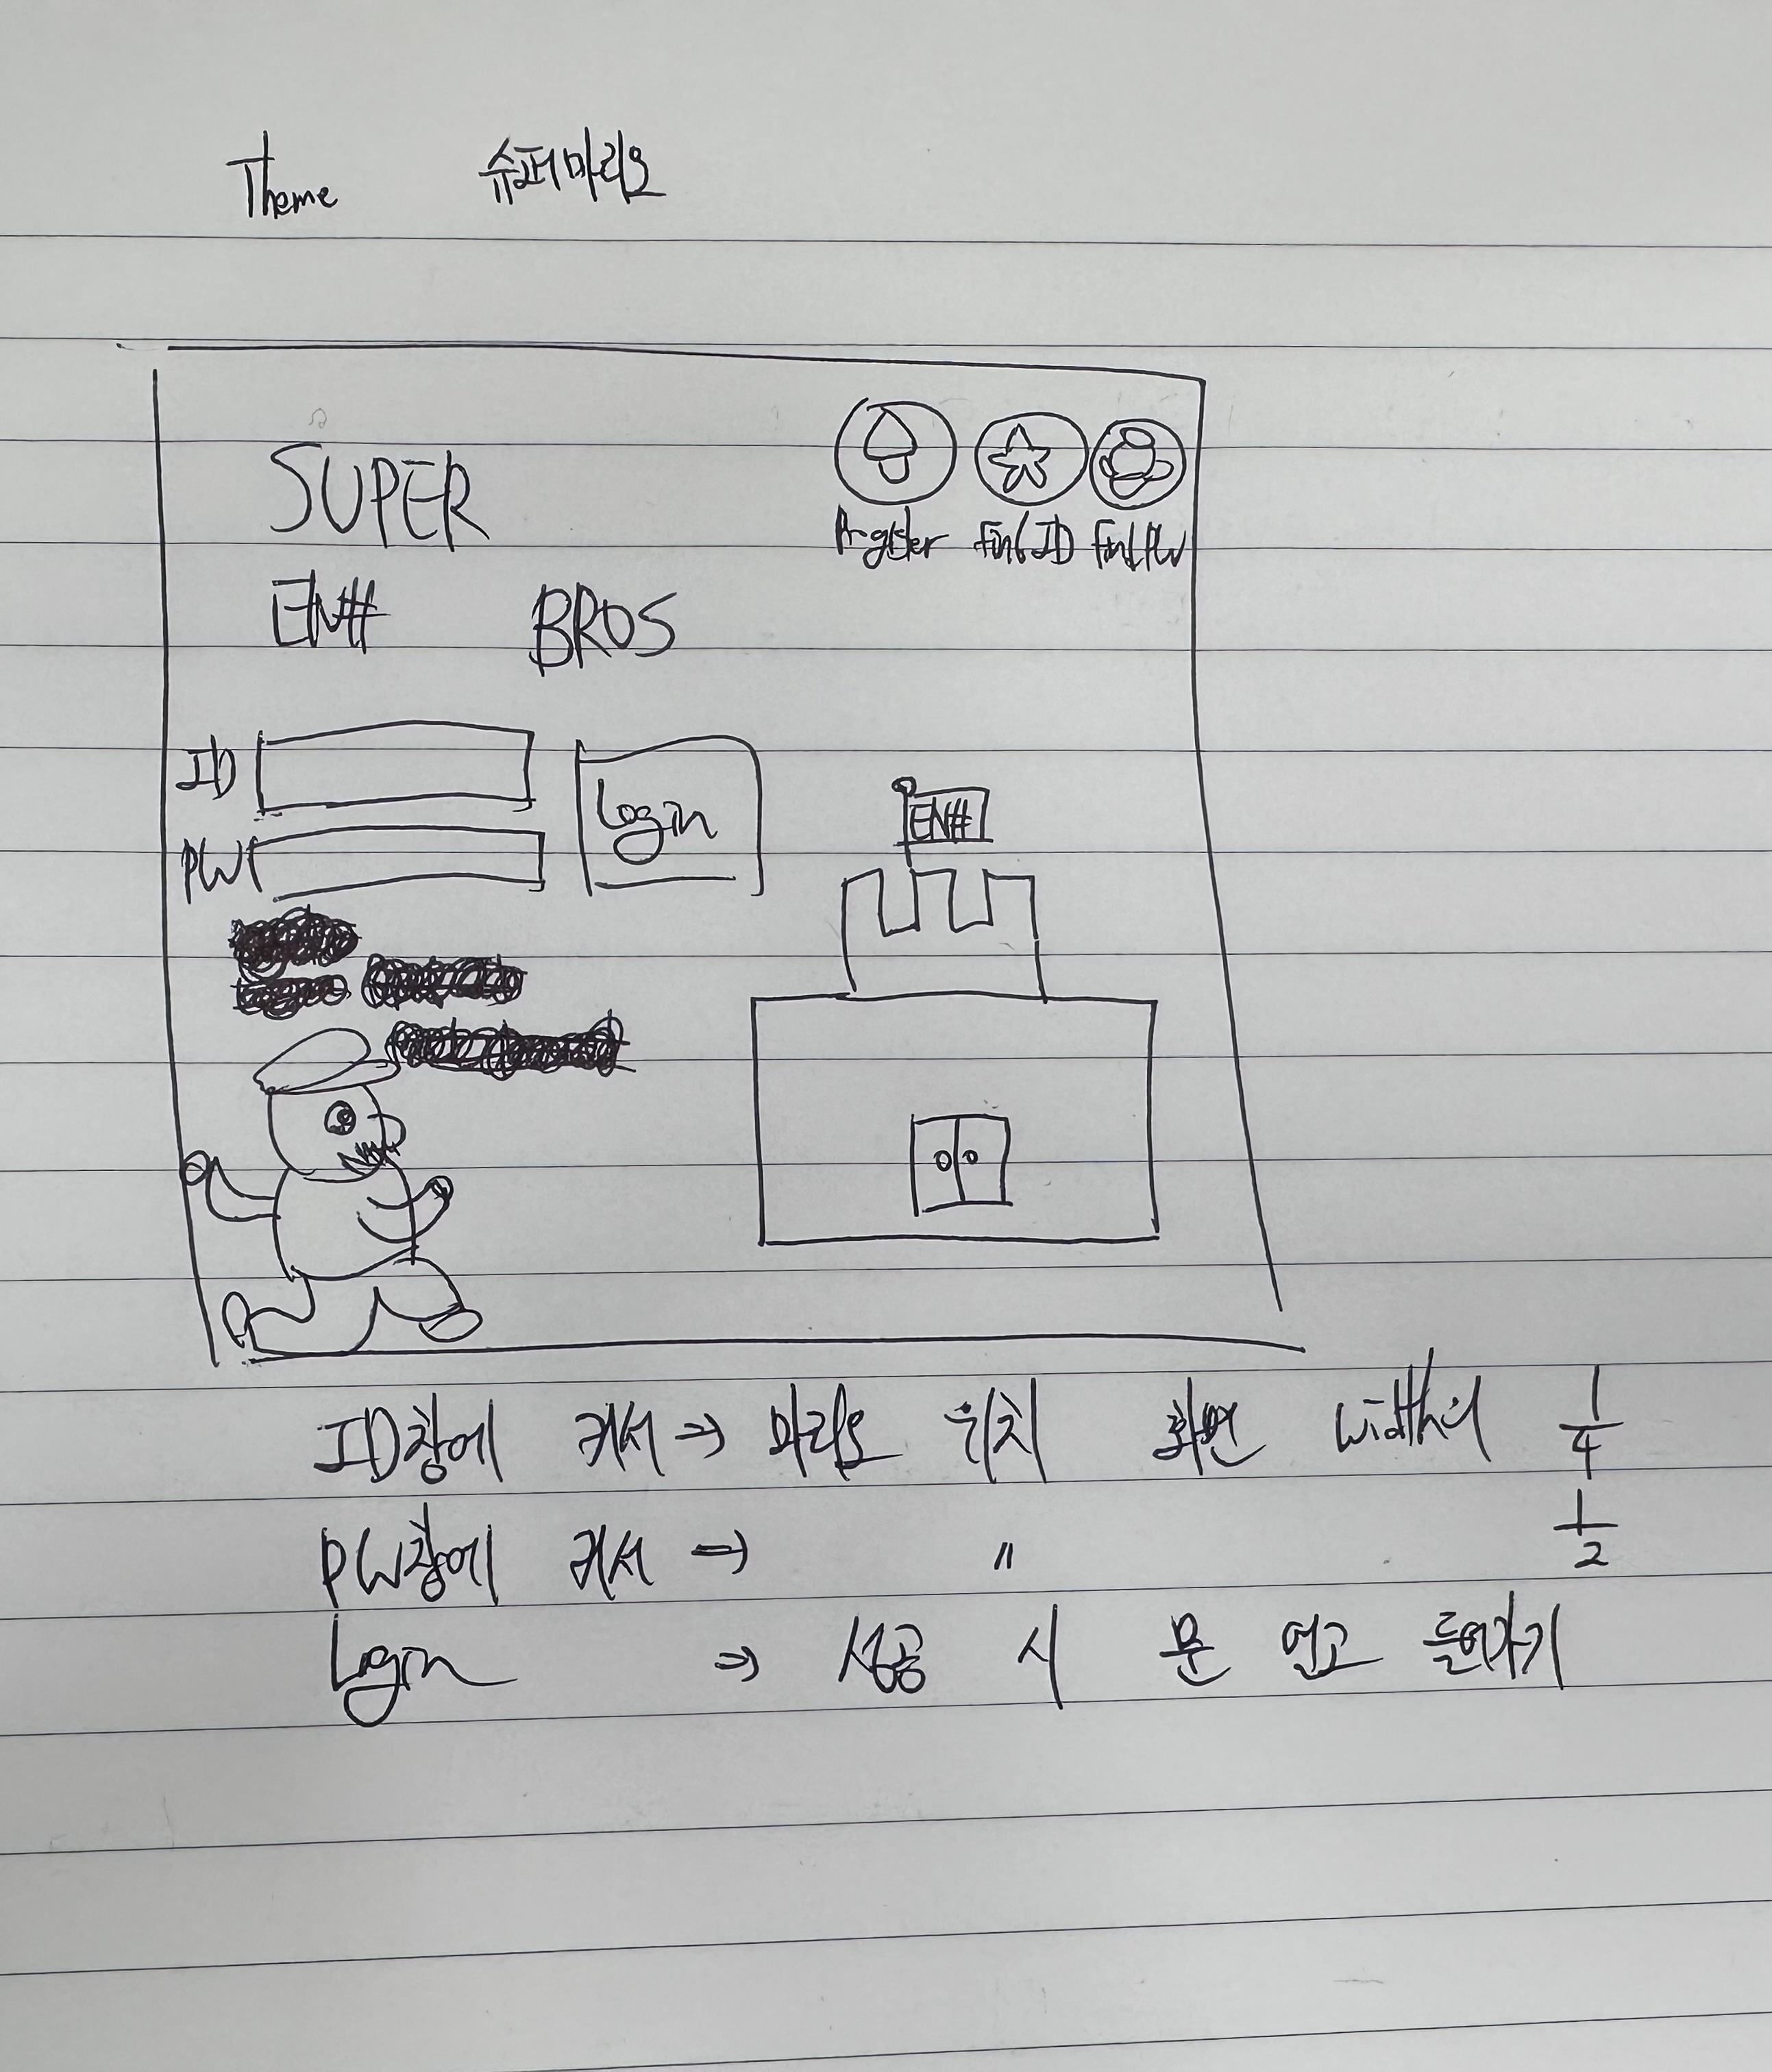 Theme 슈퍼마리오
SUPER
EN# BROS
Register Find ID Find PW
ID
PW
Login
EN#
ID창에 커서 ⇒ 마리오 위치 화면 width의 1/4
PW창에 커서 ⇒ 〃 1/2
Login ⇒ 성공 시 문 열고 들어가기